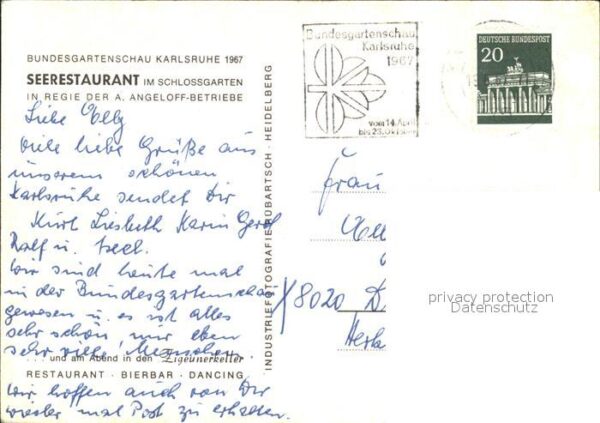 BUNDESGARTENSCHAU KARLSRUHE 1967
SEERESTAURANT IM SCHLOSSGARTEN
IN REGIE DER A. ANGELOFF-BETRIEBE
Liebe Elly
viele liebe Grüße aus
unserem schönen
Karlsruhe sendet Dir
Kurt Liesbeth Karin Gerd
Ralf u.
Wir sind heute mal
in der Bundesgartenschau
gewesen u. es ist alles
sehr schön nur eben
sehr viele Menschen.
... und am Abend in den „Zigeunerkeller“
RESTAURANT · BIERBAR · DANCING
Wir hoffen auch von Dir
wieder mal Post zu erhalten.
INDUSTRIEFOTOGRAFIE RUBARTSCH - HEIDELBERG
Bundesgartenschau
Karlsruhe
1967
vom 14. April
bis 23. Oktober
DEUTSCHE BUNDESPOST
20
Frau
8020 D
privacy protection
Datenschutz